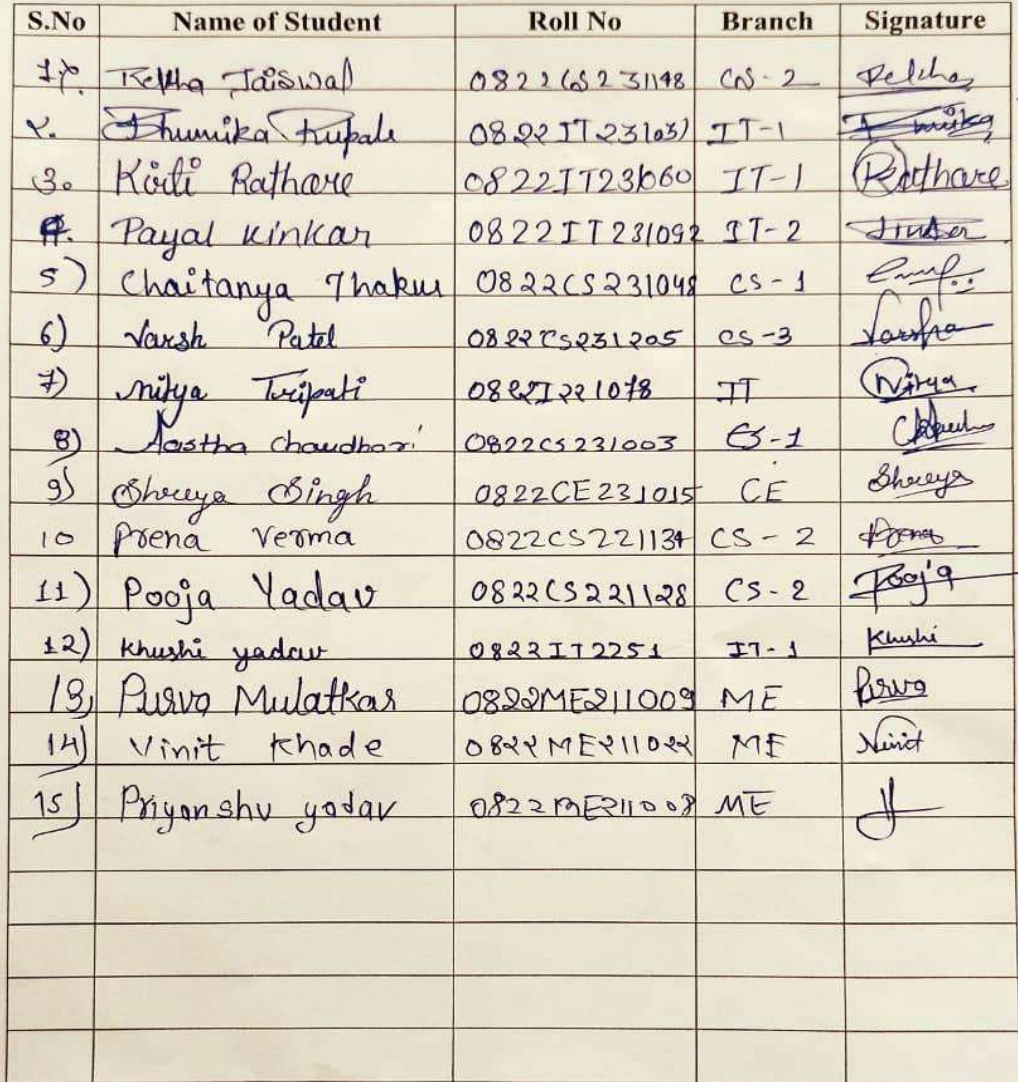 S.No Name of Student Roll No Branch Signature
1. Jaiswal 0822CS231148 CS-2
2. Bhumika Rupale 0822IT231031 IT-1
3. Kirti Rathare 0822IT231060 IT-1 Rathare
4. Payal Kinkar 0822IT231092 IT-2
5) Chaitanya Thakur 0822CS231048 CS-1
6) Varsh Patel 0822CS231205 CS-3 Varsha
7) Nitya Tripati 0822I221078 IT Nitya
8) Aastha Chaudhari 0822CS231003 CS-1
9) Shreya Singh 0822CE231015 CE Shreya
10 Prena Verma 0822CS221134 CS-2 Prena
11) Pooja Yadav 0822CS221128 CS-2 Pooja
12) Khushi yadav 0822IT2251 IT-1 Khushi
13) Purva Mulatkar 0822ME211009 ME Purva
14) Vinit Khade 0822ME211022 ME Vinit
15) Priyanshu yadav 0822ME211008 ME